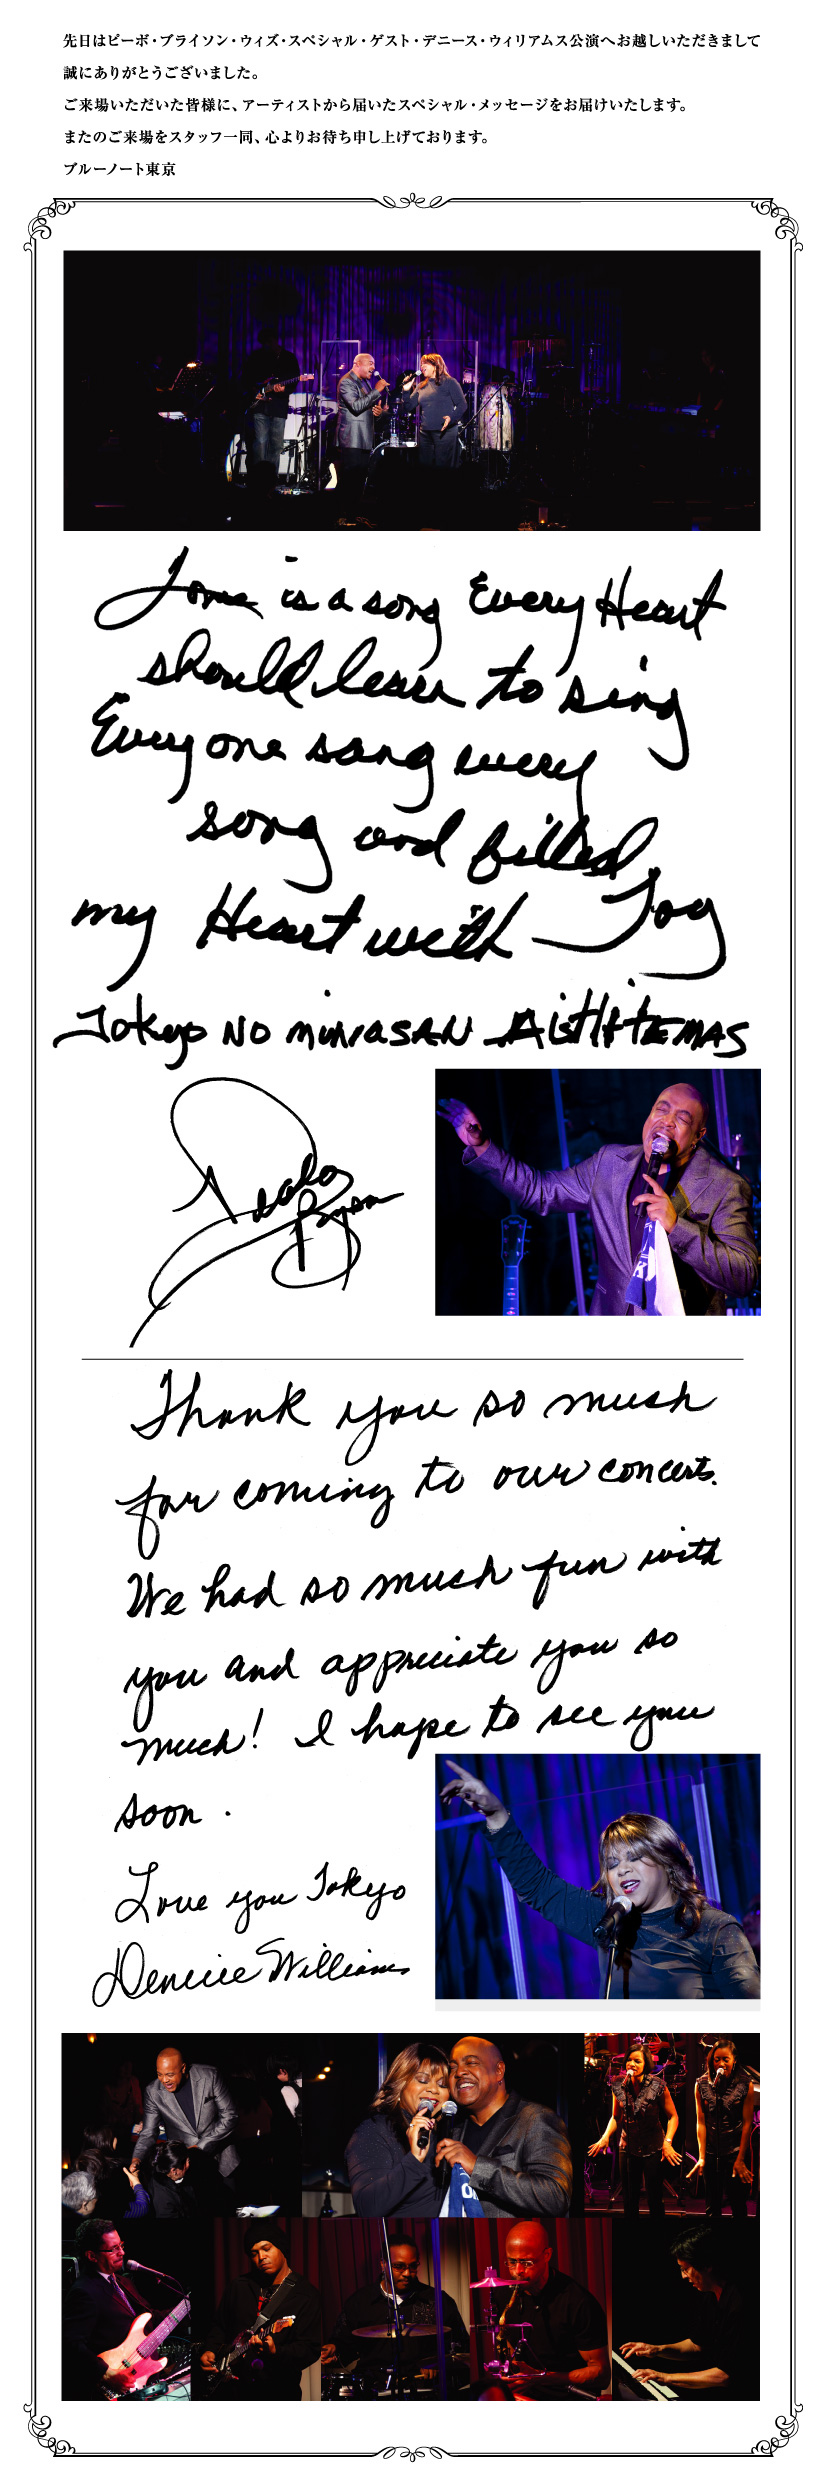 先日はピーボ・ブライソン・ウィズ・スペシャル・ゲスト・デニース・ウィリアムス公演へお越しいただきまして
誠にありがとうございました。
ご来場いただいた皆様に、アーティストから届いたスペシャル・メッセージをお届けいたします。
またのご来場をスタッフ一同、心よりお待ち申し上げております。
ブルーノート東京
Love is a song Every Heart
should learn to sing
Everyone sang every
song and filled
my Heart with Joy
Tokyo NO minasAN AisHiTEMAS
Peabo
Bryson
Thank you so much
for coming to our concerts.
We had so much fun with
you and appreciate you so
much! I hope to see you
soon.
Love you Tokyo
Deniece Williams